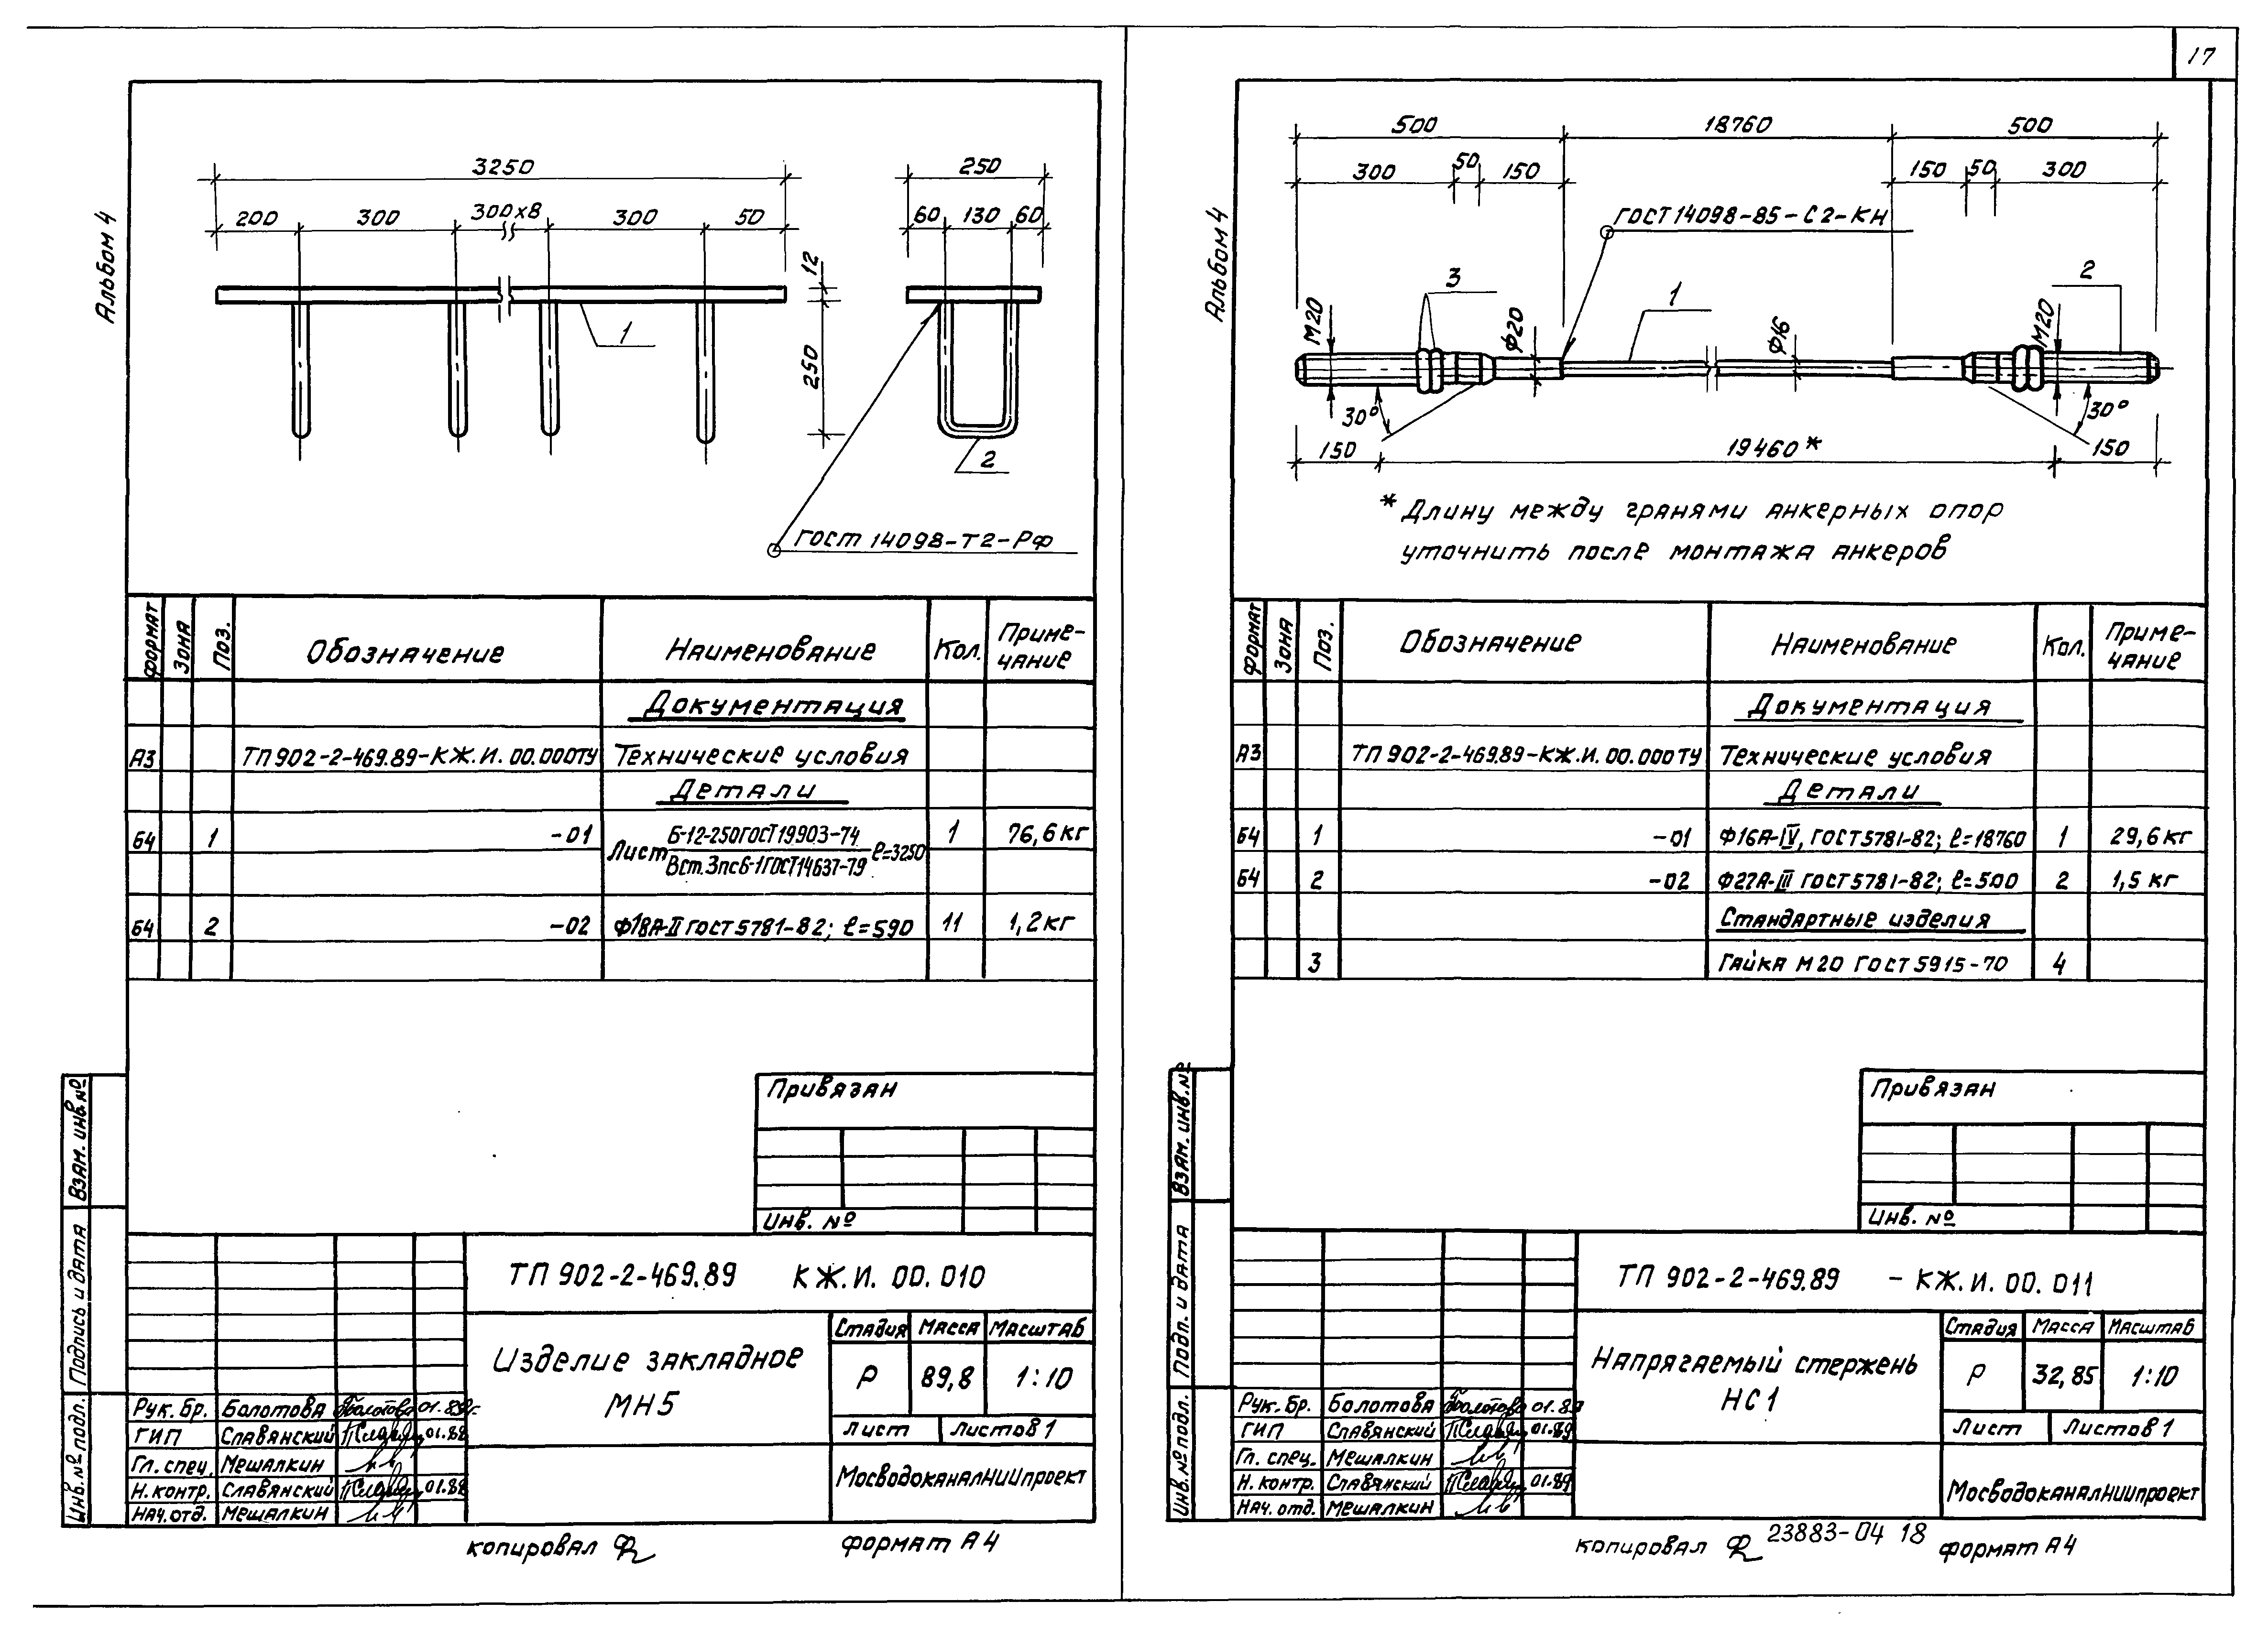 17
Альбом 4
3250
200 300 300х8 300 50
250
60 130 60
12
250
1
2
ГОСТ 14098-Т2-РФ
Формат Зона Поз. Обозначение Наименование Кол. Приме-
чание
Документация
А3 ТП 902-2-469.89-КЖ.И.00.000ТУ Технические условия
Детали
Б4 1 -01 Лист Б-12-250 ГОСТ 19903-74 ℓ=3250 1 76,6 кг
Вст.3пс6-1 ГОСТ 14637-79
Б4 2 -02 Ф18А-II ГОСТ 5781-82; ℓ=590 11 1,2 кг
Привязан
Инв. №
Взам. инв. №
Подпись и дата
Инв. № подл.
ТП 902-2-469.89 КЖ.И.00.010
Изделие закладное
МН5
Стадия Масса Масштаб
Р 89,8 1:10
Лист Листов 1
Мосводоканалниипроект
Рук. бр. Болотова 01.89г.
ГИП Славянский 01.89
Гл. спец. Мешалкин
Н. контр. Славянский 01.89
Нач. отд. Мешалкин
копировал
формат А4
Альбом 4
500 18760 500
300 50 150 150 50 300
ГОСТ 14098-85-С2-КН
3
1
2
М20
Ф20
Ф16
М20
30°
30°
150 19460* 150
* Длину между гранями анкерных опор
уточнить после монтажа анкеров
Формат Зона Поз. Обозначение Наименование Кол. Приме-
чание
Документация
А3 ТП 902-2-469.89-КЖ.И.00.000ТУ Технические условия
Детали
Б4 1 -01 Ф16А-IV, ГОСТ 5781-82; ℓ=18760 1 29,6 кг
Б4 2 -02 Ф27А-III ГОСТ 5781-82; ℓ=500 2 1,5 кг
Стандартные изделия
3 Гайка М20 ГОСТ 5915-70 4
Привязан
Инв. №
Взам. инв. №
Подп. и дата
Инв. № подл.
ТП 902-2-469.89 - КЖ.И.00.011
Напрягаемый стержень
НС1
Стадия Масса Масштаб
Р 32,85 1:10
Лист Листов 1
Мосводоканалниипроект
Рук. бр. Болотова 01.89
ГИП Славянский 01.89
Гл. спец. Мешалкин
Н. контр. Славянский 01.89
Нач. отд. Мешалкин
копировал 23883-04 18 формат А4